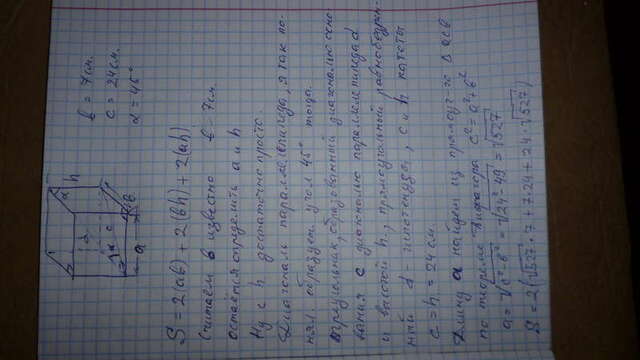 b = 7 см.
c = 24 см.
α = 45°
S = 2(ab) + 2(bh) + 2(ah)
Считаем b известно b = 7 см.
остается определить a и h
Ну с h достаточно просто.
Диагональ параллелепипеда, я так по-
нял образует угол 45° тогда
треугольник, образованный диагональю осно
вания c диагональю параллелепипеда d
и высотой h, прямоугольный равнобедрен-
ный d - гипотенуза, c и h катеты
c = h = 24 см.
Длину a найдем из прямоуг-го Δ acb
по теореме Пифагора c² = a² + b²
a = √c² - b² = √24² - 49 = √527
S = 2(√527 · 7 + 7 · 24 + 24 · √527)
h
d
α
c
a
b